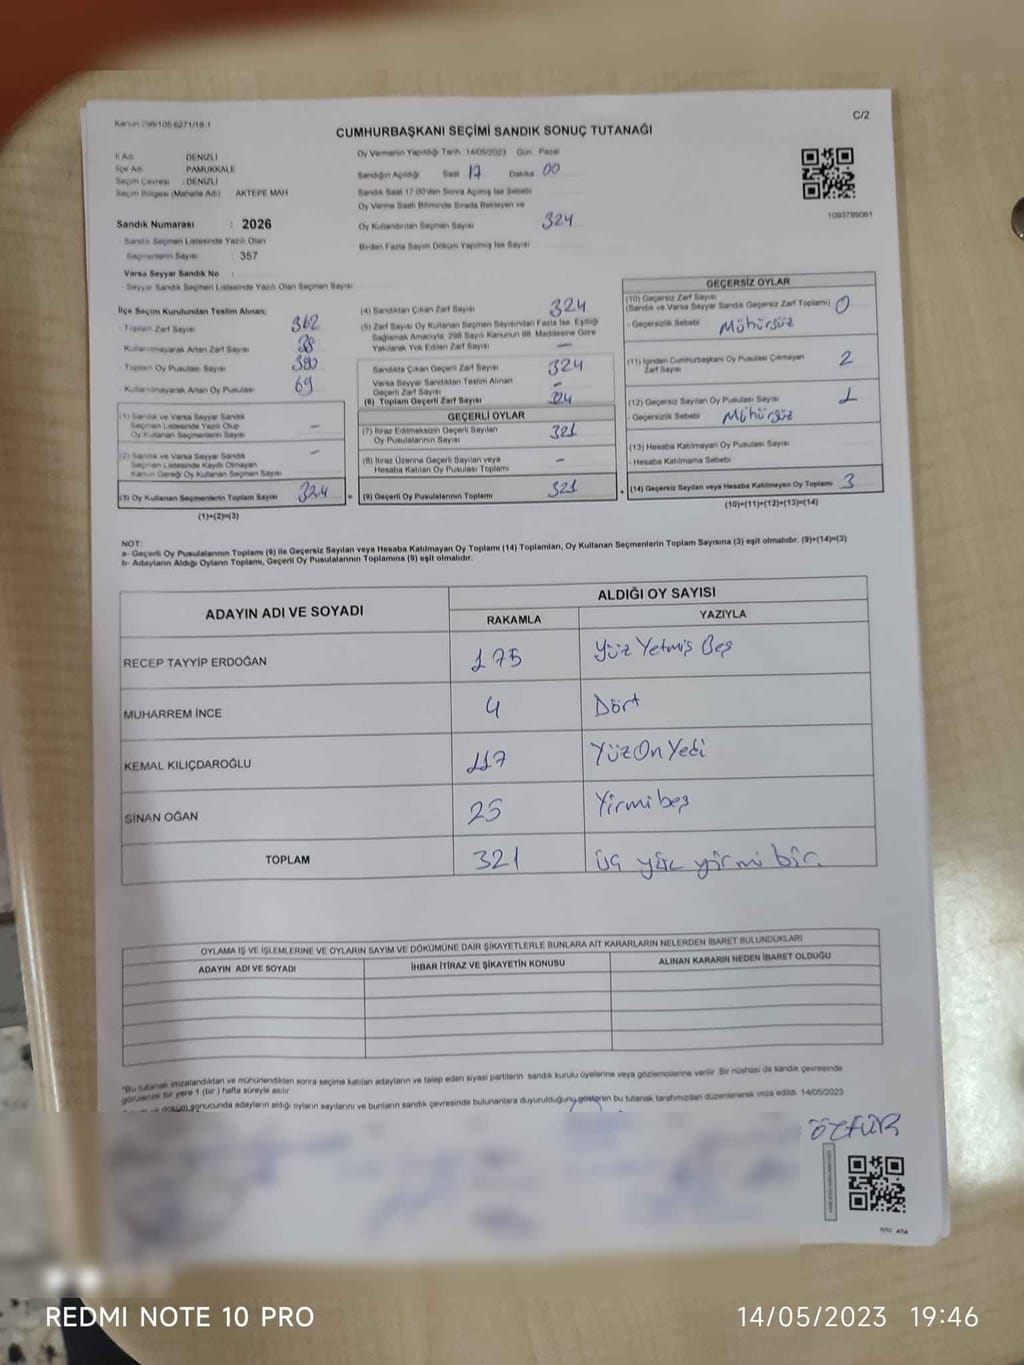 Kanun 298/105 6271/18-1
C/2
CUMHURBAŞKANI SEÇİMİ SANDIK SONUÇ TUTANAĞI
İl Adı : DENİZLİ
İlçe Adı : PAMUKKALE
Seçim Çevresi : DENİZLİ
Seçim Bölgesi (Mahalle Adı) AKTEPE MAH
Oy Vermenin Yapıldığı Tarih 14/05/2023 Gün Pazar
Sandığın Açıldığı Saat 17 Dakika 00
Sandık Saat 17.00'den Sonra Açılmış İse Sebebi
Oy Verme Saati Bitiminde Sırada Bekleyen ve
Oy Kullandırılan Seçmen Sayısı 324
Birden Fazla Sayım Döküm Yapılmış İse Sayısı
1093789061
Sandık Numarası : 2026
- Sandık Seçmen Listesinde Yazılı Olan
Seçmenlerin Sayısı : 357
Varsa Seyyar Sandık No :
- Seyyar Sandık Seçmen Listesinde Yazılı Olan Seçmen Sayısı
İlçe Seçim Kurulundan Teslim Alınan;
- Toplam Zarf Sayısı 362
- Kullanılmayarak Artan Zarf Sayısı 38
Toplam Oy Pusulası Sayısı
- Kullanılmayarak Artan Oy Pusulası 69
(1) Sandık ve Varsa Seyyar Sandık
Seçmen Listesinde Yazılı Olup
Oy Kullanan Seçmenlerin Sayısı –
(2) Sandık ve Varsa Seyyar Sandık
Seçmen Listesinde Kayıtlı Olmayan
Kanun Gereği Oy Kullanan Seçmen Sayısı –
(3) Oy Kullanan Seçmenlerin Toplam Sayısı 324
(1)+(2)=(3)
(4) Sandıktan Çıkan Zarf Sayısı 324
(5) Zarf Sayısı Oy Kullanan Seçmen Sayısından Fazla İse, Eşitliği
Sağlamak Amacıyla, 298 Sayılı Kanunun 98. Maddesine Göre
Yakılarak Yok Edilen Zarf Sayısı –
Sandıkta Çıkan Geçerli Zarf Sayısı 324
Varsa Seyyar Sandıktan Teslim Alınan
Geçerli Zarf Sayısı –
(6) Toplam Geçerli Zarf Sayısı
GEÇERLİ OYLAR
(7) İtiraz Edilmeksizin Geçerli Sayılan
Oy Pusulalarının Sayısı 321
(8) İtiraz Üzerine Geçerli Sayılan veya
Hesaba Katılan Oy Pusulası Toplamı –
(9) Geçerli Oy Pusulalarının Toplamı 321
GEÇERSİZ OYLAR
(10) Geçersiz Zarf Sayısı
(Sandık ve Varsa Seyyar Sandık Geçersiz Zarf Toplamı) 0
- Geçersizlik Sebebi Mühürsüz
(11) İçinden Cumhurbaşkanı Oy Pusulası Çıkmayan
Zarf Sayısı 2
(12) Geçersiz Sayılan Oy Pusulası Sayısı 1
- Geçersizlik Sebebi Mühürsüz
(13) Hesaba Katılmayan Oy Pusulası Sayısı
- Hesaba Katılmama Sebebi
(14) Geçersiz Sayılan veya Hesaba Katılmayan Oy Toplamı 3
(10)+(11)+(12)+(13)=(14)
NOT:
a- Geçerli Oy Pusulalarının Toplamı (9) ile Geçersiz Sayılan veya Hesaba Katılmayan Oy Toplamı (14) Toplamları, Oy Kullanan Seçmenlerin Toplam Sayısına (3) eşit olmalıdır. (9)+(14)=(3)
b- Adayların Aldığı Oyların Toplamı, Geçerli Oy Pusulalarının Toplamına (9) eşit olmalıdır.
ADAYIN ADI VE SOYADI
ALDIĞI OY SAYISI
RAKAMLA YAZIYLA
RECEP TAYYİP ERDOĞAN 175 Yüz Yetmiş Beş
MUHARREM İNCE 4 Dört
KEMAL KILIÇDAROĞLU 117 Yüz On Yedi
SİNAN OĞAN 25 Yirmi beş
TOPLAM 321 üç yüz yirmi bir
OYLAMA İŞ VE İŞLEMLERİNE VE OYLARIN SAYIM VE DÖKÜMÜNE DAİR ŞİKAYETLERLE BUNLARA AİT KARARLARIN NELERDEN İBARET BULUNDUKLARI
ADAYIN ADI VE SOYADI İHBAR İTİRAZ VE ŞİKAYETİN KONUSU ALINAN KARARIN NEDEN İBARET OLDUĞU
*Bu tutanak imzalandıktan ve mühürlendikten sonra seçime katılan adayların ve talep eden siyasi partilerin sandık kurulu üyelerine veya gözlemcilerine verilir. Bir nüshası da sandık çevresinde
görülecek bir yere 1 (bir) hafta süreyle asılır
döküm sonucunda adayların aldığı oyların sayılarını ve bunların sandık çevresinde bulunanlara duyurulduğunu gösteren bu tutanak tarafımızdan düzenlenerek imza edildi. 14/05/2023
REDMI NOTE 10 PRO
14/05/2023 19:46